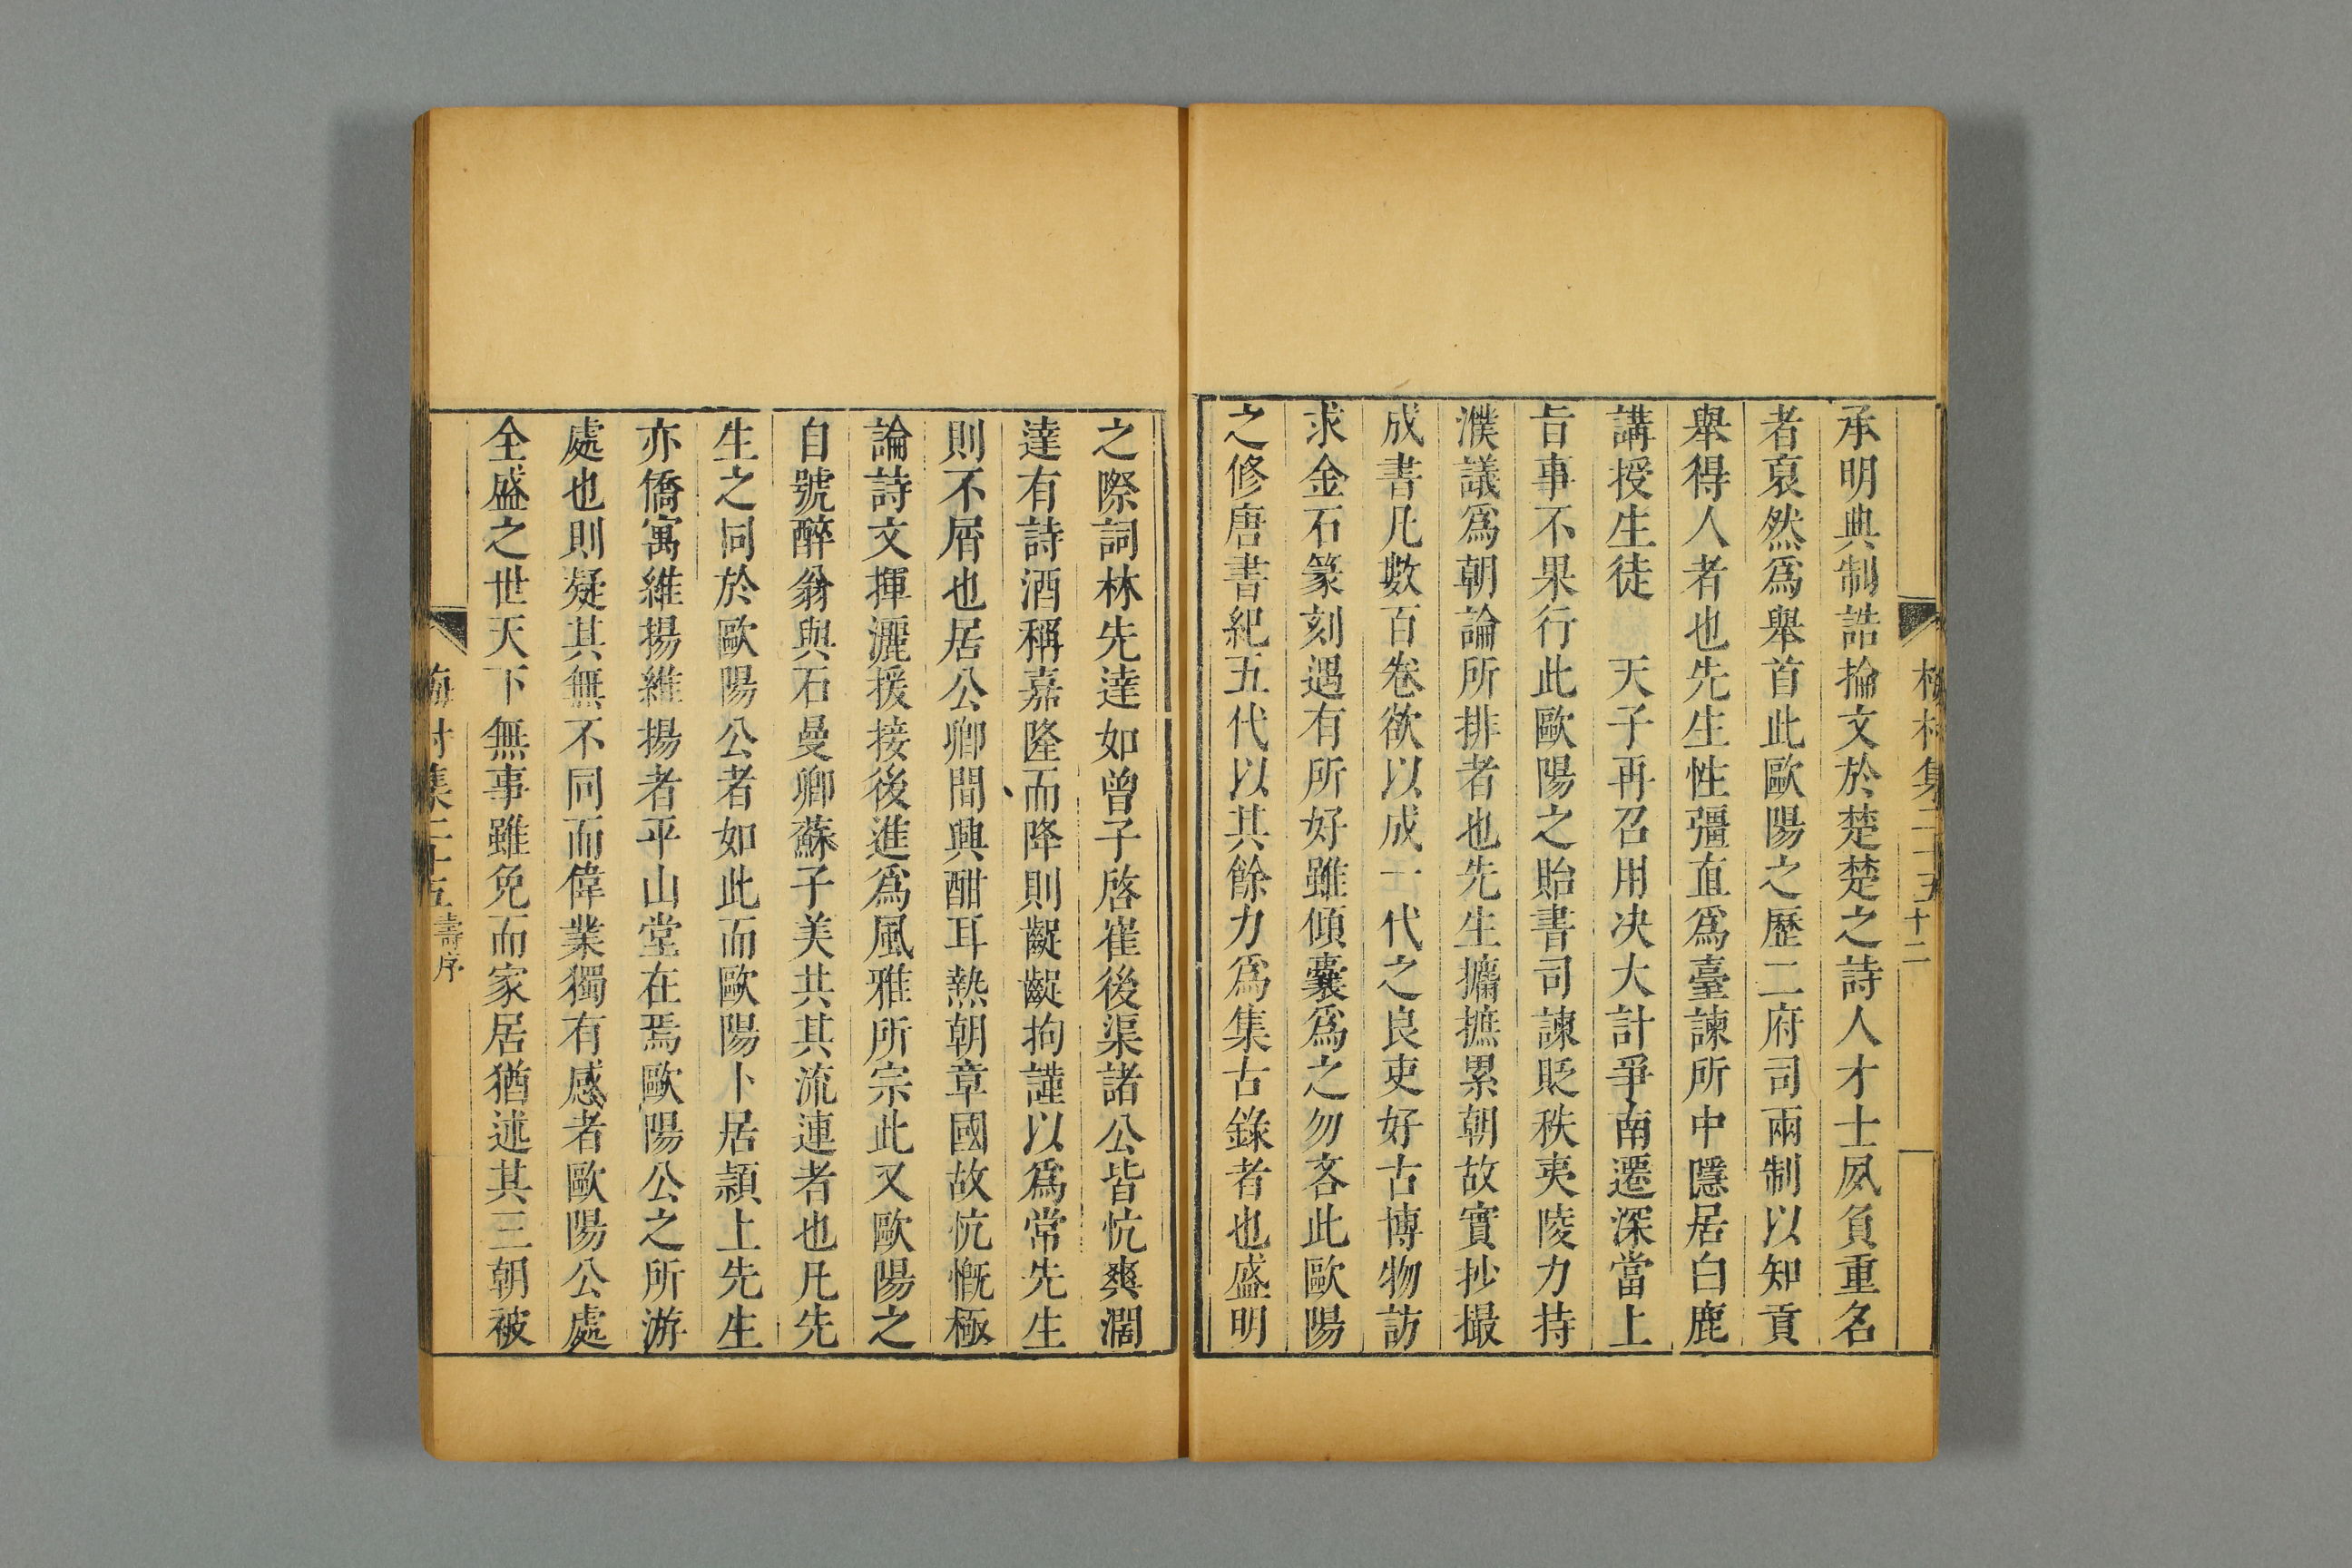 承明典制誥掄文於楚楚之詩人才士夙負重名
者裒然爲舉首此歐陽之歷二府司兩制以知貢
舉得人者也先生性彊直爲臺諫所中隱居白鹿
講授生徒　天子再召用决大計爭南遷深當上
旨事不果行此歐陽之貽書司諫貶秩夷陵力持
濮議爲朝論所排者也先生攟摭累朝故實抄撮
成書凡數百卷欲以成一代之良吏好古博物訪
求金石篆刻遇有所好雖傾囊爲之勿吝此歐陽
之修唐書紀五代以其餘力爲集古錄者也盛明
之際詞林先達如曾子啓崔後渠諸公皆伉爽濶
達有詩酒稱嘉隆而降則齪齪拘謹以爲常先生
則不屑也居公卿間興酣耳熱朝章國故伉慨極
論詩文揮灑援接後進爲風雅所宗此又歐陽之
自號醉翁與石曼卿蘇子美共其流連者也凡先
生之同於歐陽公者如此而歐陽卜居潁上先生
亦僑寓維揚維揚者平山堂在焉歐陽公之所游
處也則疑其無不同而偉業獨有感者歐陽公處
全盛之世天下無事雖免而家居猶述其三朝被
梅村集二十五 十二
梅村集二十五 壽序